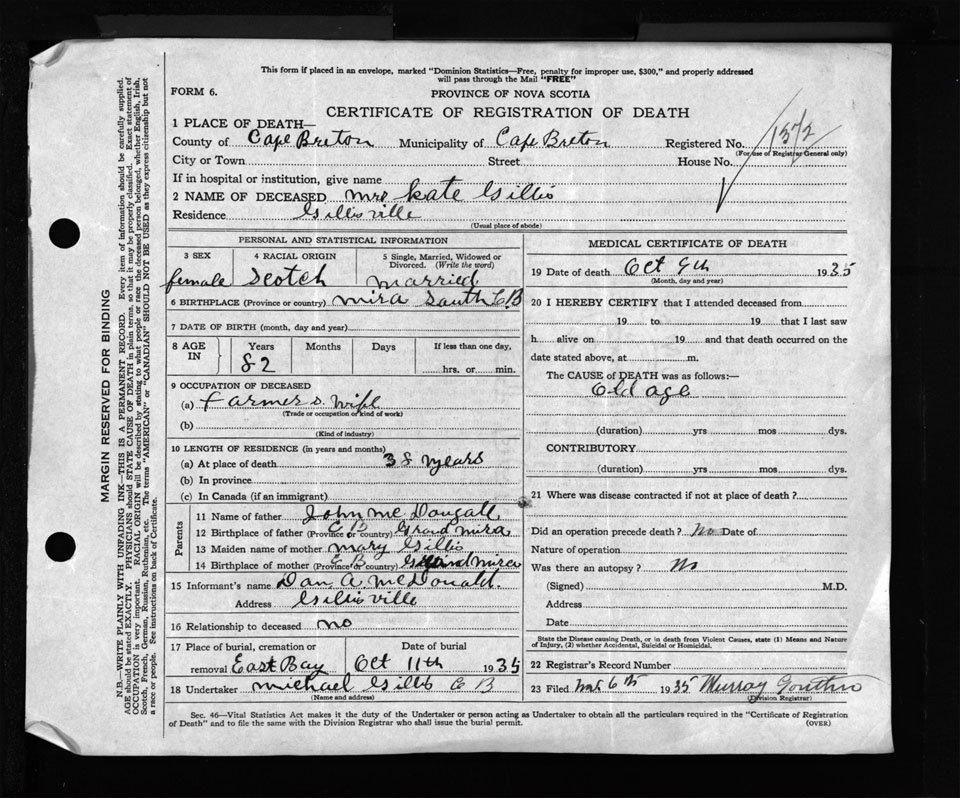 This form if placed in an envelope, marked "Dominion Statistics—Free, penalty for improper use, $300," and properly addressed
will pass through the Mail "FREE"
FORM 6.
PROVINCE OF NOVA SCOTIA
CERTIFICATE OF REGISTRATION OF DEATH
1 PLACE OF DEATH—
County of Cape Breton Municipality of Cape Breton Registered No. 1372
(For use of Registrar General only)
City or Town Street House No.
If in hospital or institution, give name
2 NAME OF DECEASED Mrs Kate Gillis
Residence Gillisville
(Usual place of abode)
PERSONAL AND STATISTICAL INFORMATION
3 SEX 4 RACIAL ORIGIN 5 Single, Married, Widowed or Divorced. (Write the word)
female Scotch married
6 BIRTHPLACE (Province or country) Mira South C B
7 DATE OF BIRTH (month, day and year)
8 AGE IN Years Months Days If less than one day,
82 hrs. or min.
9 OCCUPATION OF DECEASED
(a) Farmers Wife
(Trade or occupation or kind of work)
(b)
(Kind of industry)
10 LENGTH OF RESIDENCE (in years and months)
(a) At place of death 38 years
(b) In province
(c) In Canada (if an immigrant)
Parents
11 Name of father John McDougall
12 Birthplace of father (Province or country) C B Grand Mira
13 Maiden name of mother Mary Gillis
14 Birthplace of mother (Province or country) C B Grand Mira
15 Informant's name Dan A. McDonald
Address Gillisville
16 Relationship to deceased no
17 Place of burial, cremation or Date of burial
removal East Bay Oct 11th 1935
18 Undertaker Michael Gillis C B
(Name and address)
MEDICAL CERTIFICATE OF DEATH
19 Date of death Oct 9th 1935
(Month, day and year)
20 I HEREBY CERTIFY that I attended deceased from
19 to 19 that I last saw
h alive on 19 and that death occurred on the
date stated above, at m.
The CAUSE of DEATH was as follows:—
Old age
(duration) yrs mos dys.
CONTRIBUTORY
(duration) yrs mos dys.
21 Where was disease contracted if not at place of death?
Did an operation precede death? No Date of
Nature of operation
Was there an autopsy? No
(Signed) M.D.
Address
Date
State the Disease causing Death, or in death from Violent Causes, state (1) Means and Nature
of Injury, (2) whether Accidental, Suicidal or Homicidal.
22 Registrar's Record Number
23 Filed 6th 1935 Murray
(Division Registrar)
Sec. 46—Vital Statistics Act makes it the duty of the Undertaker or person acting as Undertaker to obtain all the particulars required in the "Certificate of Registration
of Death" and to file the same with the Division Registrar who shall issue the burial permit.
(OVER)
MARGIN RESERVED FOR BINDING
N.B.—WRITE PLAINLY WITH UNFADING INK—THIS IS A PERMANENT RECORD. Every item of information should be carefully supplied.
AGE should be stated EXACTLY. PHYSICIANS should STATE CAUSE OF DEATH in plain terms, so that it may be properly classified. Exact statement of
OCCUPATION is very important. RACIAL ORIGIN will be described by stating to what people or race the deceased person belonged, whether English, Irish,
Scotch, French, German, Russian, Ruthenian, etc. The terms "AMERICAN" or "CANADIAN" SHOULD NOT BE USED as they express citizenship but not
a race or people. See instructions on back of Certificate.